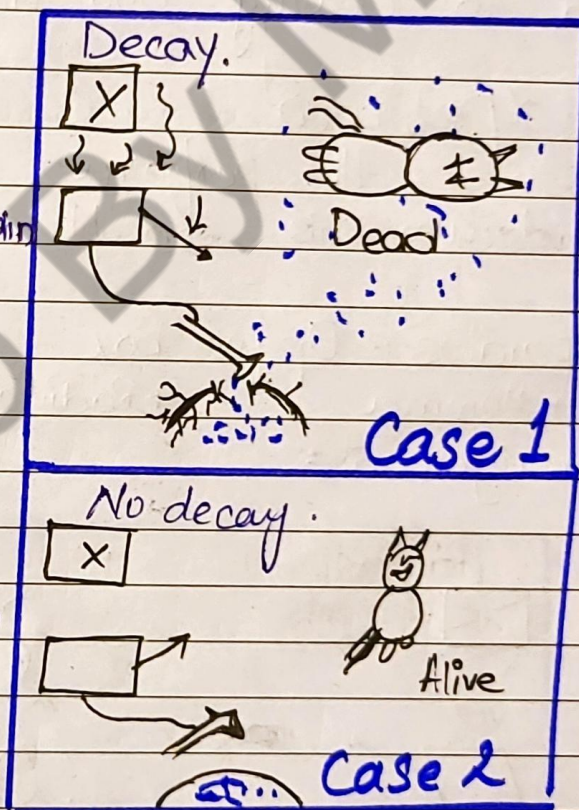 Decay.
X
Dead
Case 1
No decay.
X
Alive
Case 2